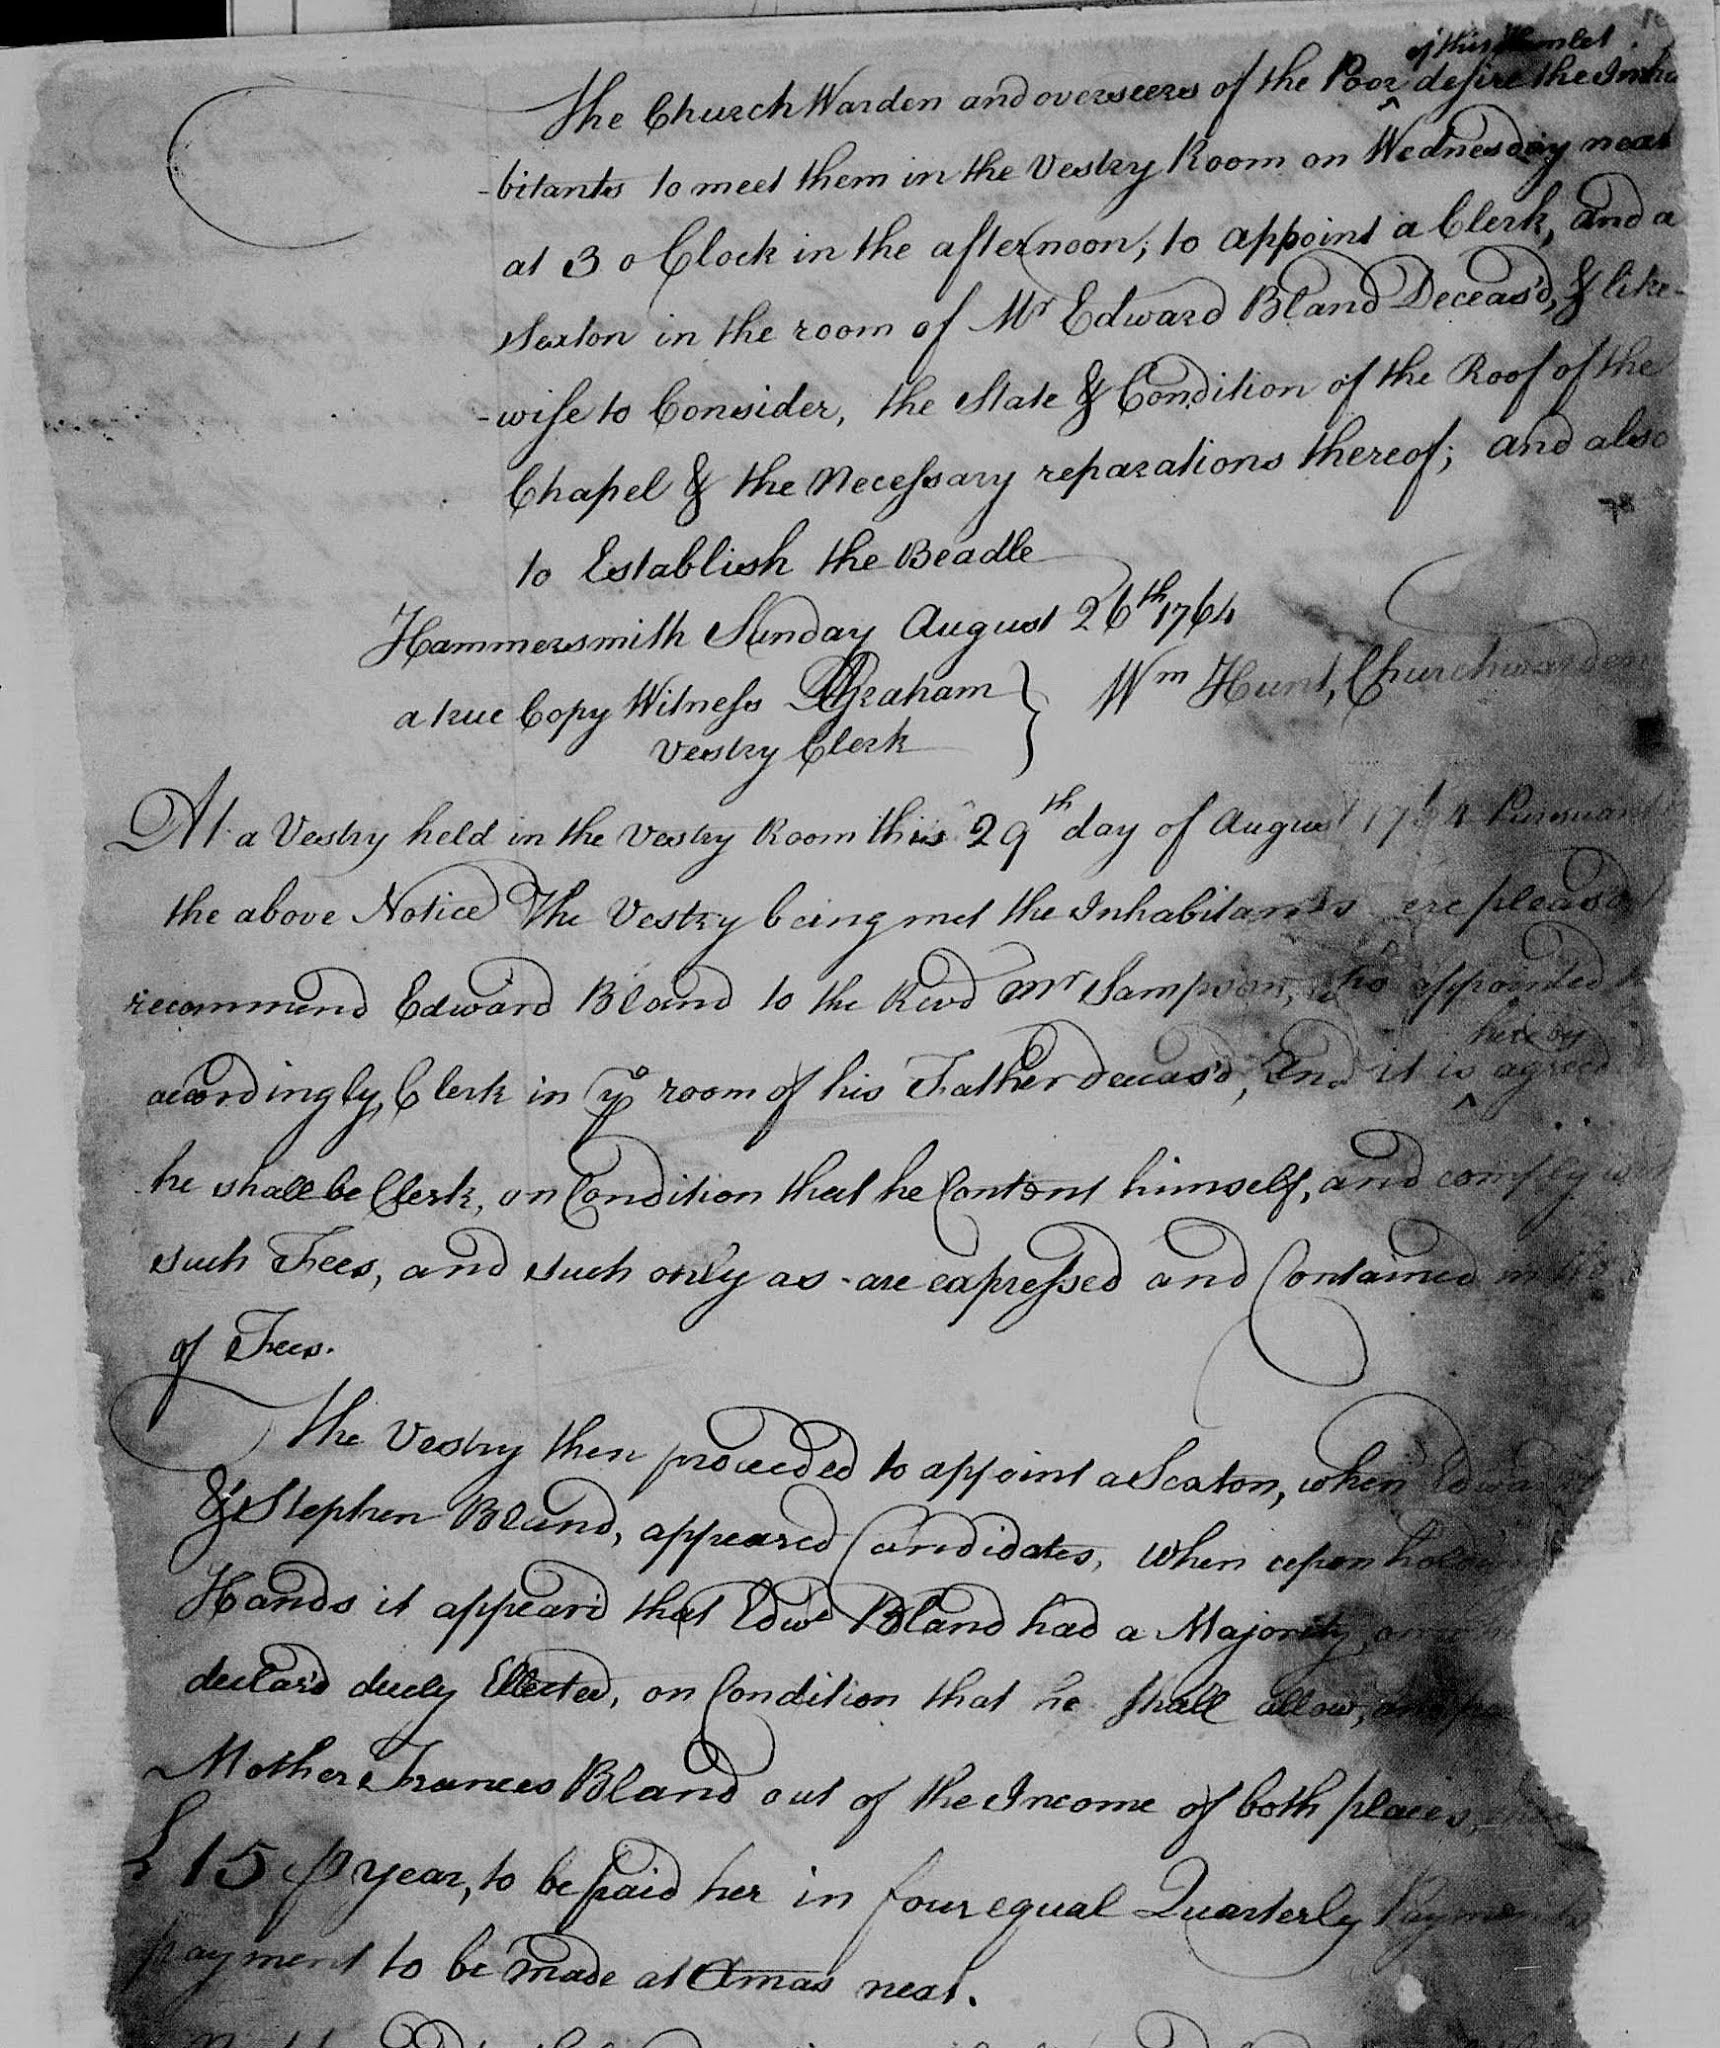 of this Hamlet
The Church Warden and overseers of the Poor ^ desire the Inha
-bitants to meet them in the Vestry Room on Wednesday next
at 3 o Clock in the afternoon; to appoint a Clerk, and a
Sexton in the room of Mr Edward Bland Deceas'd, & like-
-wise to Consider, the State & Condition of the Roof of the
Chapel & the Necessary reparations thereof; and also
to Establish the Beadle
Hammersmith Sunday August 26th 1764
a true Copy Witness Graham } Wm Hunt, Churchwarden
Vestry Clerk
At a Vestry held in the Vestry Room this 29th day of August 1764 Pursuant
the above Notice The Vestry being met the Inhabitants were pleas'd
recommend Edward Bland to the Revd Mr Sampson, who appointed
hereby
accordingly, Clerk in ye room of his Father deceas'd, And it is ^ agreed
he shall be Clerk, on Condition that he Content himself, and comply
such Fees, and such only as are expressed and Contained in
of Fees.
The Vestry then proceeded to appoint a Sexton, when Edward
& Stephen Bland, appeared Candidates, when upon holding
Hands it appear'd that Edwd Bland had a Majority,
declar'd duely Elected, on Condition that he shall allow, and
Mother Frances Bland out of the Income of both places,
£15 p year, to be paid her in four equal Quarterly Payments
payment to be made at Xmas next.